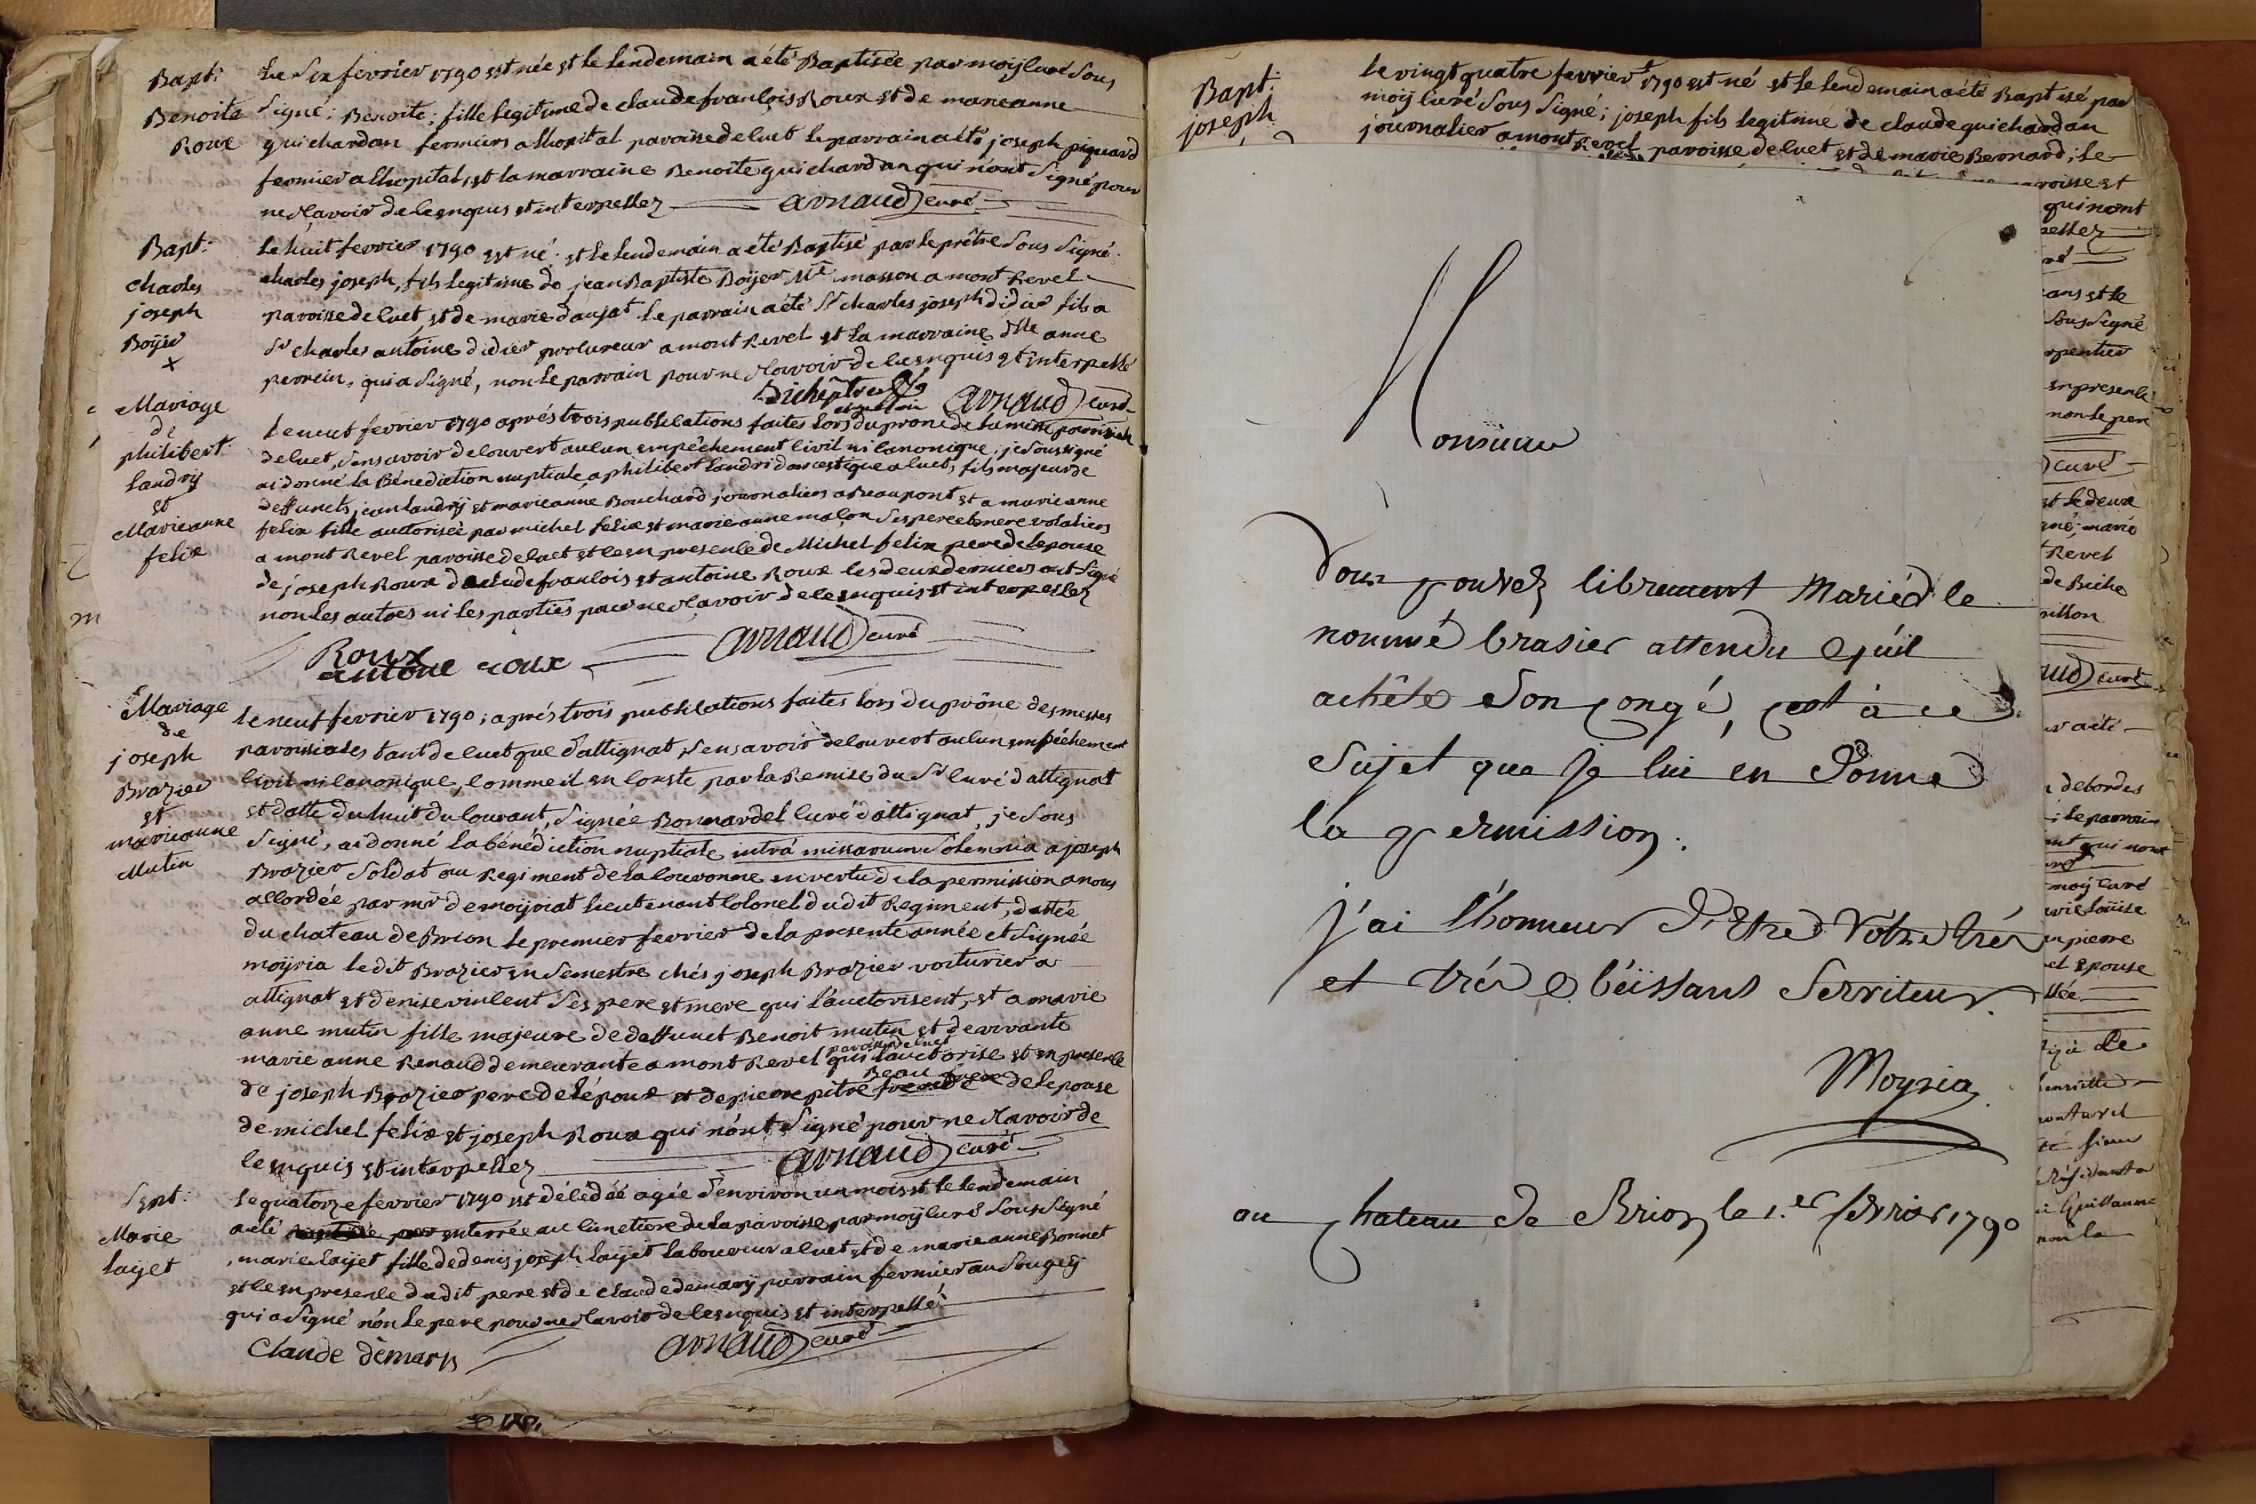 Bapt:
Benoite
Roux
Le Six fevrier 1790 est née et le lendemain a été Baptisée par moÿ curé Sous
Signé; Benoite; fille legitime de claude françois Roux et de marieanne
guichardan fermiers a lhopital paroisse de cuet le parrain a été joseph piquard
fermier a lhopital, et la marraine Benoite guichardan qui n'ont Signé pour
ne Scavoir de ce enquis et interpellez
arnaud curé
Bapt:
charles
joseph
Boÿer
+
Le huit fevrier 1790 est né et le lendemain a été Baptisé par le prêtre Sous Signé
charles joseph, fils legitime de jean Baptiste Boÿer mtre masson a montRevel
paroisse de cuet, et de marie daujat le parrain a été Sr charles joseph didier fils a
Sr charles antoine didier procureur a montRevel et la marraine dlle anne
perrein, qui a Signé, non le parrain pour ne Scavoir de ce enquis et interpellé
arnaud curé
Mariage
de
philibert
Landrÿ
et
Marieanne
felix
le neuf fevrier 1790 aprés trois publications faites lors du prone de la messe paroissiale
de cuet, Sans avoir decouvert aucun empêchement civil ni canonique, je Soussigné
ai donné la Bénediction nuptiale a philibert Landri domestique a cuet, fils majeur de
deffuncts jean landrÿ et marieanne Bouchard journaliers a Beaupont et a marieanne
felix fille auctorisée par michel felix et marieanne malon Ses pere et mere volaliers
a montRevel paroisse de cuet et ce en presence de Michel felix pere de lepouse
de joseph Roux de claude francois et antoine Roux les deux derniers ont Signé
non les autres ni les parties pour ne Scavoir de ce enquis et interpellez
Roux
antoine roux
arnaud curé
Mariage
de
joseph
Brazier
et
marieanne
Mutin
le neuf fevrier 1790; aprés trois publications faites lors du prône des messes
paroissiales tant de cuet que d'attignat, Sans avoir decouvert aucun empêchement
civil ni canonique, comme il en conste par la Remise du Sr curé d'attignat
et datte du huit du courant, Signée Bonnardel curé d'attignat, je Sous
Signé, ai donné la bénédiction nuptiale intrá missarum Solemnia a joseph
Brazier Soldat au Regiment de la couronne en vertu de la permission a nous
accordée par mr de moÿriat lieutenant colonel dudit Regiment, dattée
du chateau de Brion le premier fevrier de la presente année et Signée
moÿria ledit Brazier en Semestre chés joseph Brazier voiturier a
attignat et denise vincent Ses pere et mere qui l'auctorisent, et a marie
anne mutin fille majeure de deffunct Benoit mutin et de vivante
marie anne Renaud demeurante a montRevel paroisse de cuet qui l'auctorise et en presence
de joseph Brazier pere de lépoux et de pierre pitre Beau frere de lepouse
de michel felix et joseph Roux qui n'ont Signé pour ne Scavoir de
ce enquis et interpellez
arnaud curé
Sept:
Marie
laÿet
le quatorze fevrier 1790 est décédéé agée d'environ un mois et le lendemain
a été enterrée au cimetiere de la paroisse par moÿ curé Sous Signé
, marie laÿet fille de denis joseph laÿet laboureur a cuet et de marie anne Bonnet
et ce en presence dudit pere et de claude demarÿ parrain fermier au Sougeÿ
qui a Signé nón le pere pour ne Scavoir de ce enquis et interpellé
Claude démary
arnaud curé
Bapt:
joseph
le vingt quatre fevrier 1790 est né et le lendemain a été Baptisé par
moÿ curé Sous Signé; joseph fils legitime de claude guichardan
journalier a montRevel paroisse de cuet et de marie Bernard; le
Monsieur
Vous pouvez librement Marier le
nommé brasier attendu qu'il
achête Son congé, c'est à ce
Sujet que je lui en Donne
la permission.
j'ai l'honneur D'Etre Votre très
et très obéissant Serviteur.
Moyria
au chateau de Brion le 1.er fevrier 1790
roisse et
qui n'ont
pellez
ans et le
Sous Signé
rpentier
en presence
non le per
curé
et le deux
gné; marie
Revel
de Biche
aud curé
a été
debordes
; le parrain
nt qui nont
moÿ curé
rie Louise
n pierre
el Epouse
llée
montrevel
Résidant a
Guillaume
non la